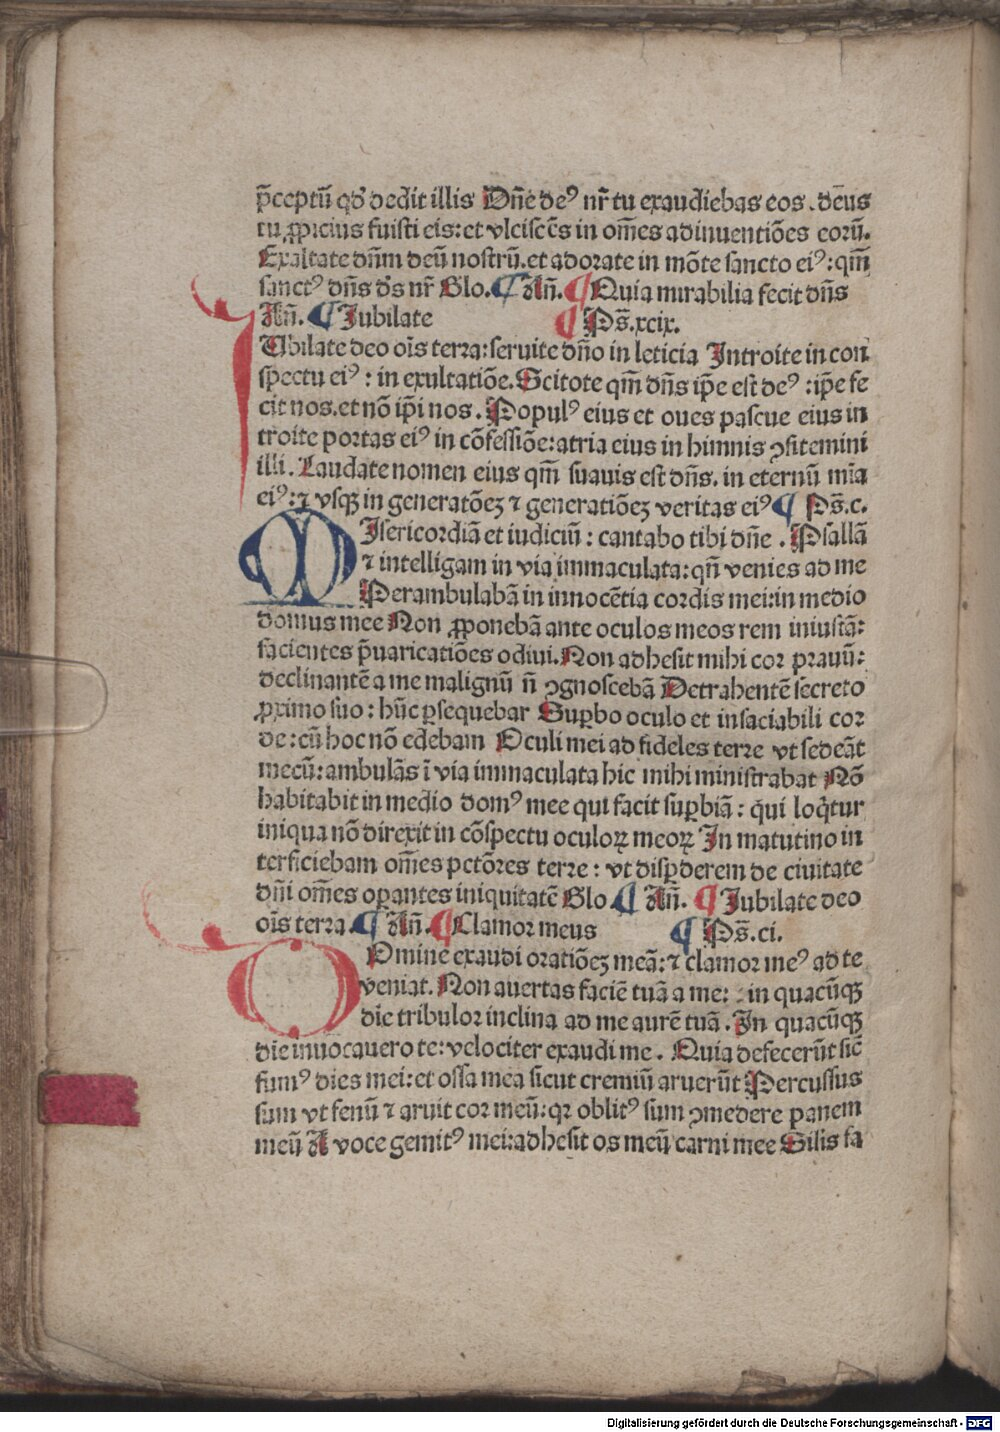 p̄ceptū qd̕ dedit illis Dn̄e deꝰ nr̄ tu exaudiebas eos . dēus
tu ꝓpicius fuisti eis: et vlciscēs in om̄es adinuentiōes eorū.
Exaltate dn̄m deū nostrū. et adorate in mōte sancto eiꝰ: qm̄
sanctꝰ dn̄s d̕s nr̄ Glo. ¶ An̄. ¶ Quia mirabilia fecit dn̄s
An̄. ¶ Jubilate ¶ Ps̄. xcix.
IUbilate deo oīs terra: seruite dn̄o in leticia Introite in con
spectu eiꝰ : in exultatiōe. Scitote qm̄ dn̄s ip̄e est deꝰ : ip̄e fe
cit nos. et nō ip̄i nos . Populꝰ eius et oues pascue eius in
troite portas eiꝰ in cōfessiōe: atria eius in himnis ꝯfitemini
illi . Laudate nomen eius qm̄ suauis est dn̄s. in eternū mīa
eiꝰ: ⁊ vsqꝫ in generatōeꝫ ⁊ generatiōeꝫ veritas eiꝰ ¶ Ps̄. c.
MIsericordiā et iudiciū : cantabo tibi dn̄e . Psallā
⁊ intelligam in via immaculata: qn̄ venies ad me
Perambulabā in innocētia cordis mei: in medio
domus mee Non ꝓponebā ante oculos meos rem iniustā:
facientes p̄uaricatiōes odiui. Non adhesit mihi cor prauū:
declinantē a me malignū n̄ ꝯgnoscebā Detrahentē secreto
ꝓximo suo : hūc ꝑsequebar Suꝑbo oculo et insaciabili cor
de: cū hoc nō edebam Oculi mei ad fideles terre vt sedeāt
mecū: ambulās ī via immaculata hic mihi ministrabat Nō
habitabit in medio domꝰ mee qui facit suꝑbiā : qui loq̄tur
iniqua nō direxit in cōspectu oculoꝝ meoꝝ In matutino in
terficiebam om̄es pctōres terre : vt disꝑderem de ciuitate
dn̄i om̄es oꝑantes iniquitatē Glo ¶ An̄. ¶ Jubilate deo
oīs terra. ¶ An̄. ¶ Clamor meus ¶ Ps̄. ci.
DOmine exaudi oratiōeꝫ meā: ⁊ clamor meꝰ ad te
veniat. Non auertas faciē tuā a me: in quacūqꝫ
die tribulor inclina ad me aurē tuā . In quacūqꝫ
die inuocauero te: velociter exaudi me . Quia defecerūt sic̄
fumꝰ dies mei: et ossa mea sicut cremiū aruerūt Percussus
sum vt fenū ⁊ aruit cor meū: qꝛ oblitꝰ sum ꝯmedere panem
meū A voce gemitꝰ mei: adhesit os meū carni mee Silis fa
Digitalisierung gefördert durch die Deutsche Forschungsgemeinschaft - DFG